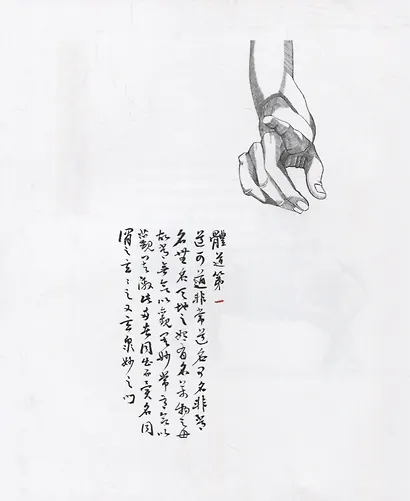 體道第一
道可道非常道名可名非常
名無名天地之始有名萬物之母
故常無欲以觀其妙常有欲以
觀其徼此兩者同出而異名同
謂之玄〻之又玄衆妙之門